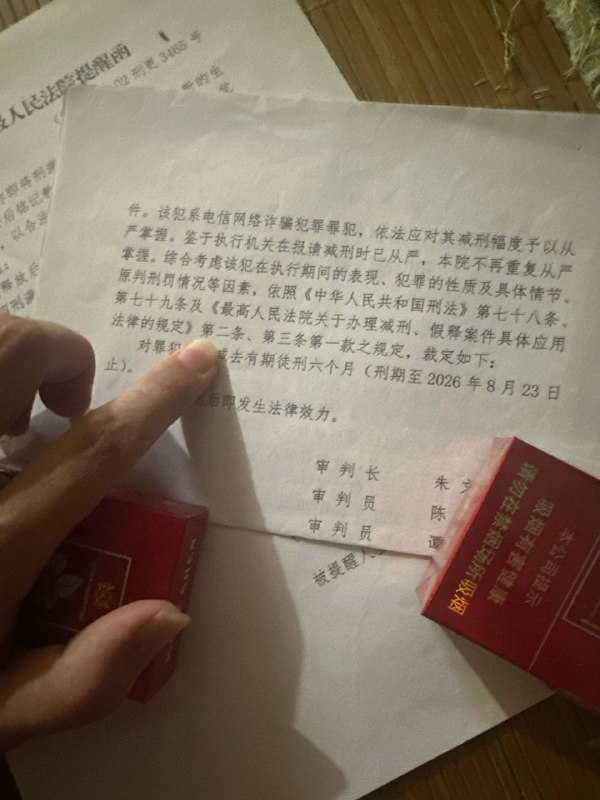 人民法院提醒函
02刑更3465号
件。该犯系电信网络诈骗犯罪罪犯，依法应对其减刑幅度予以从
严掌握。鉴于执行机关在报请减刑时已从严，本院不再重复从严
掌握。综合考虑该犯在执行期间的表现、犯罪的性质及具体情节、
原判刑罚情况等因素，依照《中华人民共和国刑法》第七十八条、
第七十九条及《最高人民法院关于办理减刑、假释案件具体应用
法律的规定》第二条、第三条第一款之规定，裁定如下：
对罪犯 减去有期徒刑六个月（刑期至2026年8月23日
止）。
后即发生法律效力。
审判长 朱
审判员 陈
审判员 谭
被提醒人
本公司提示
吸烟有害健康
请勿在禁烟场所吸烟